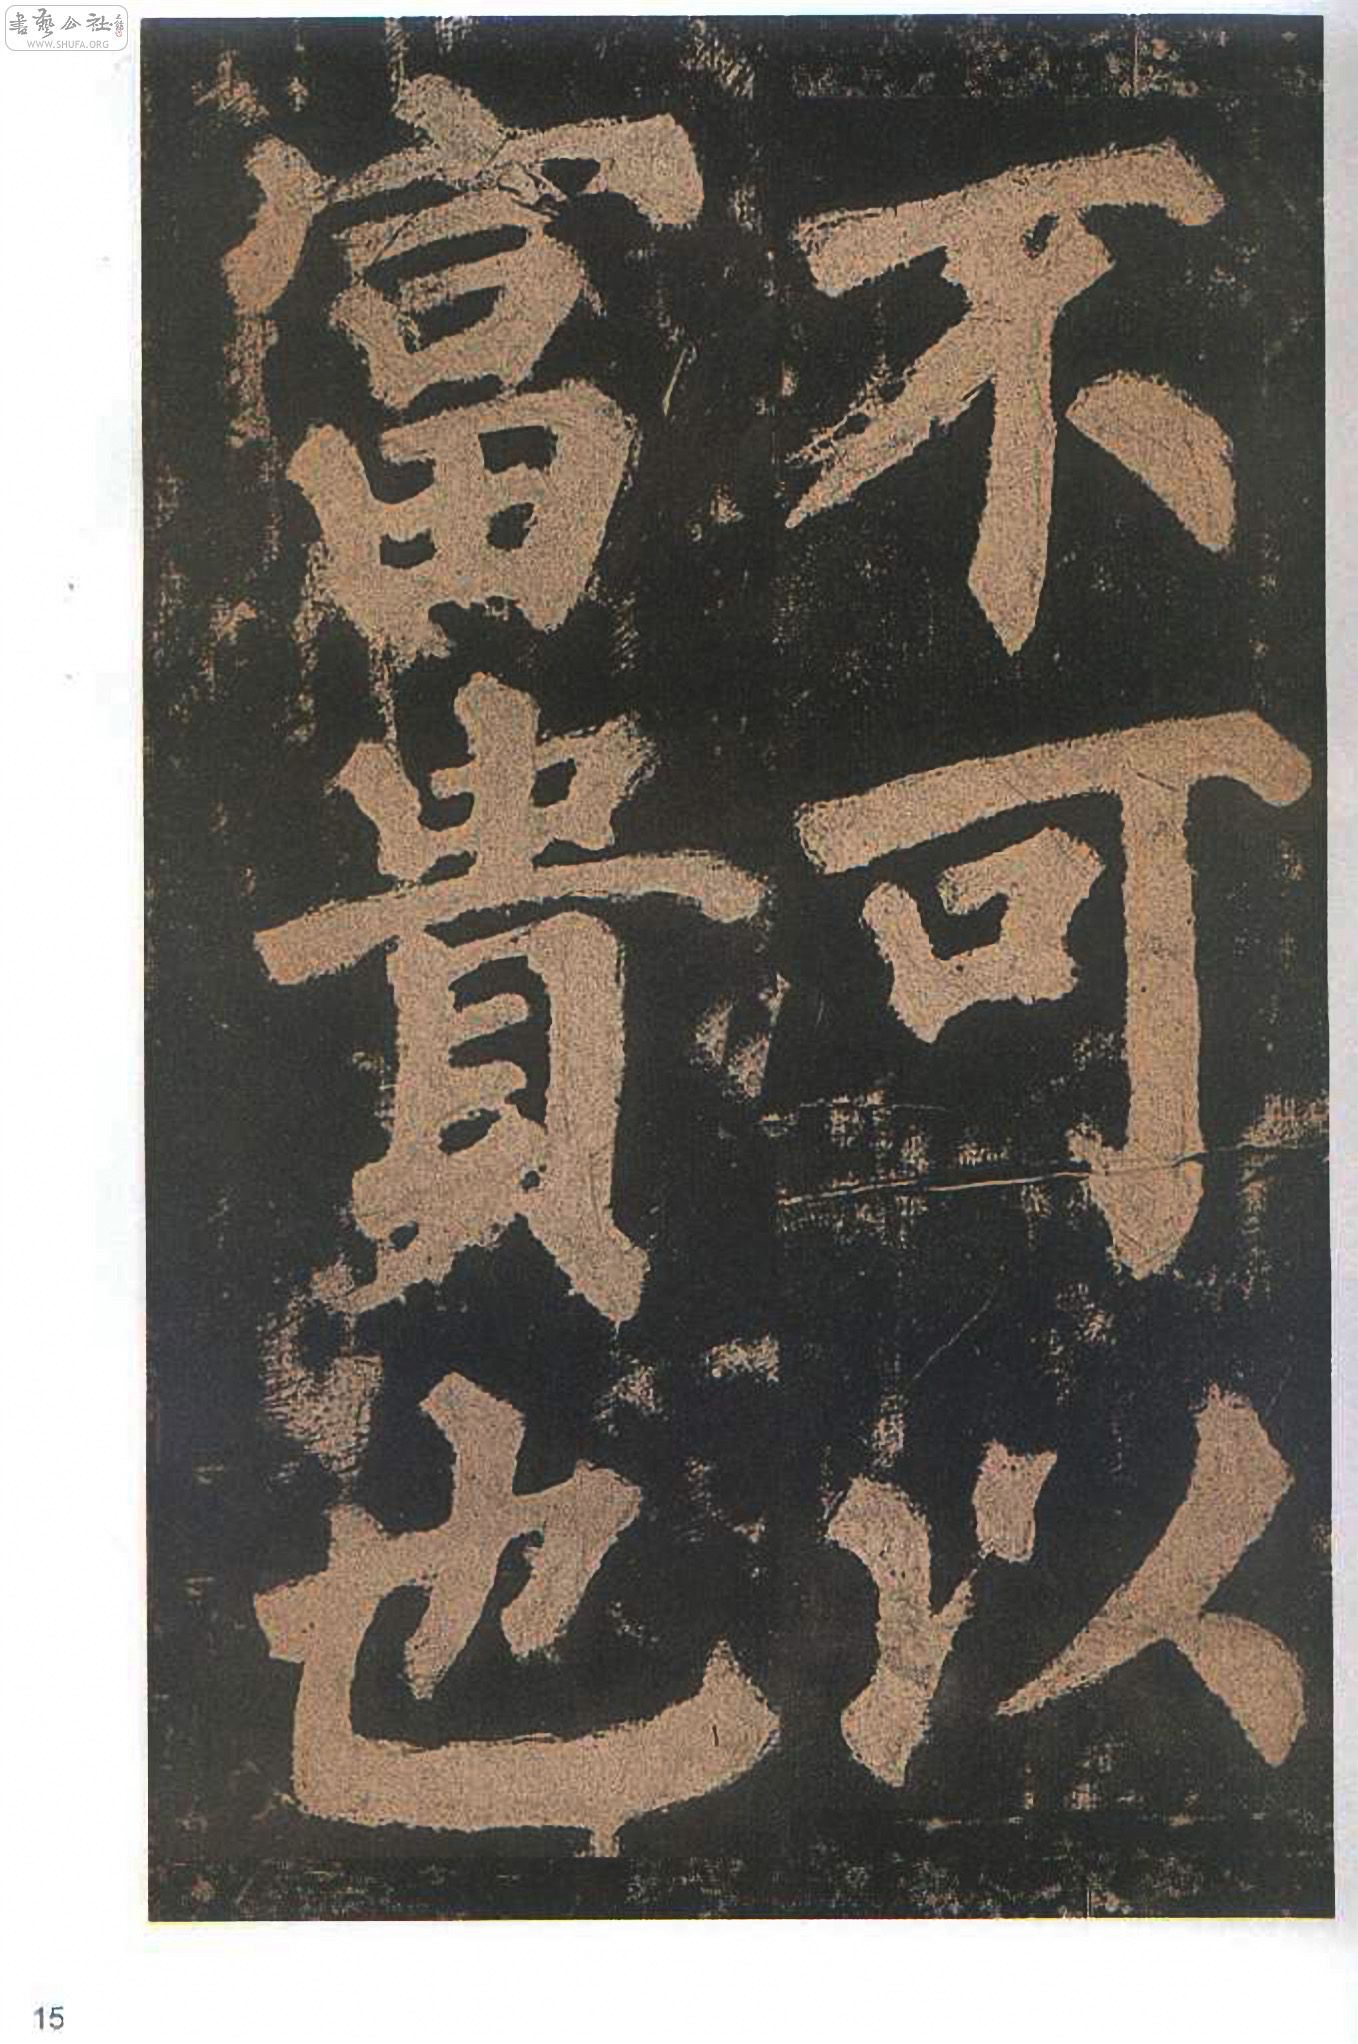 不可以
富貴也
書藝公社
WWW.SHUFA.ORG
15